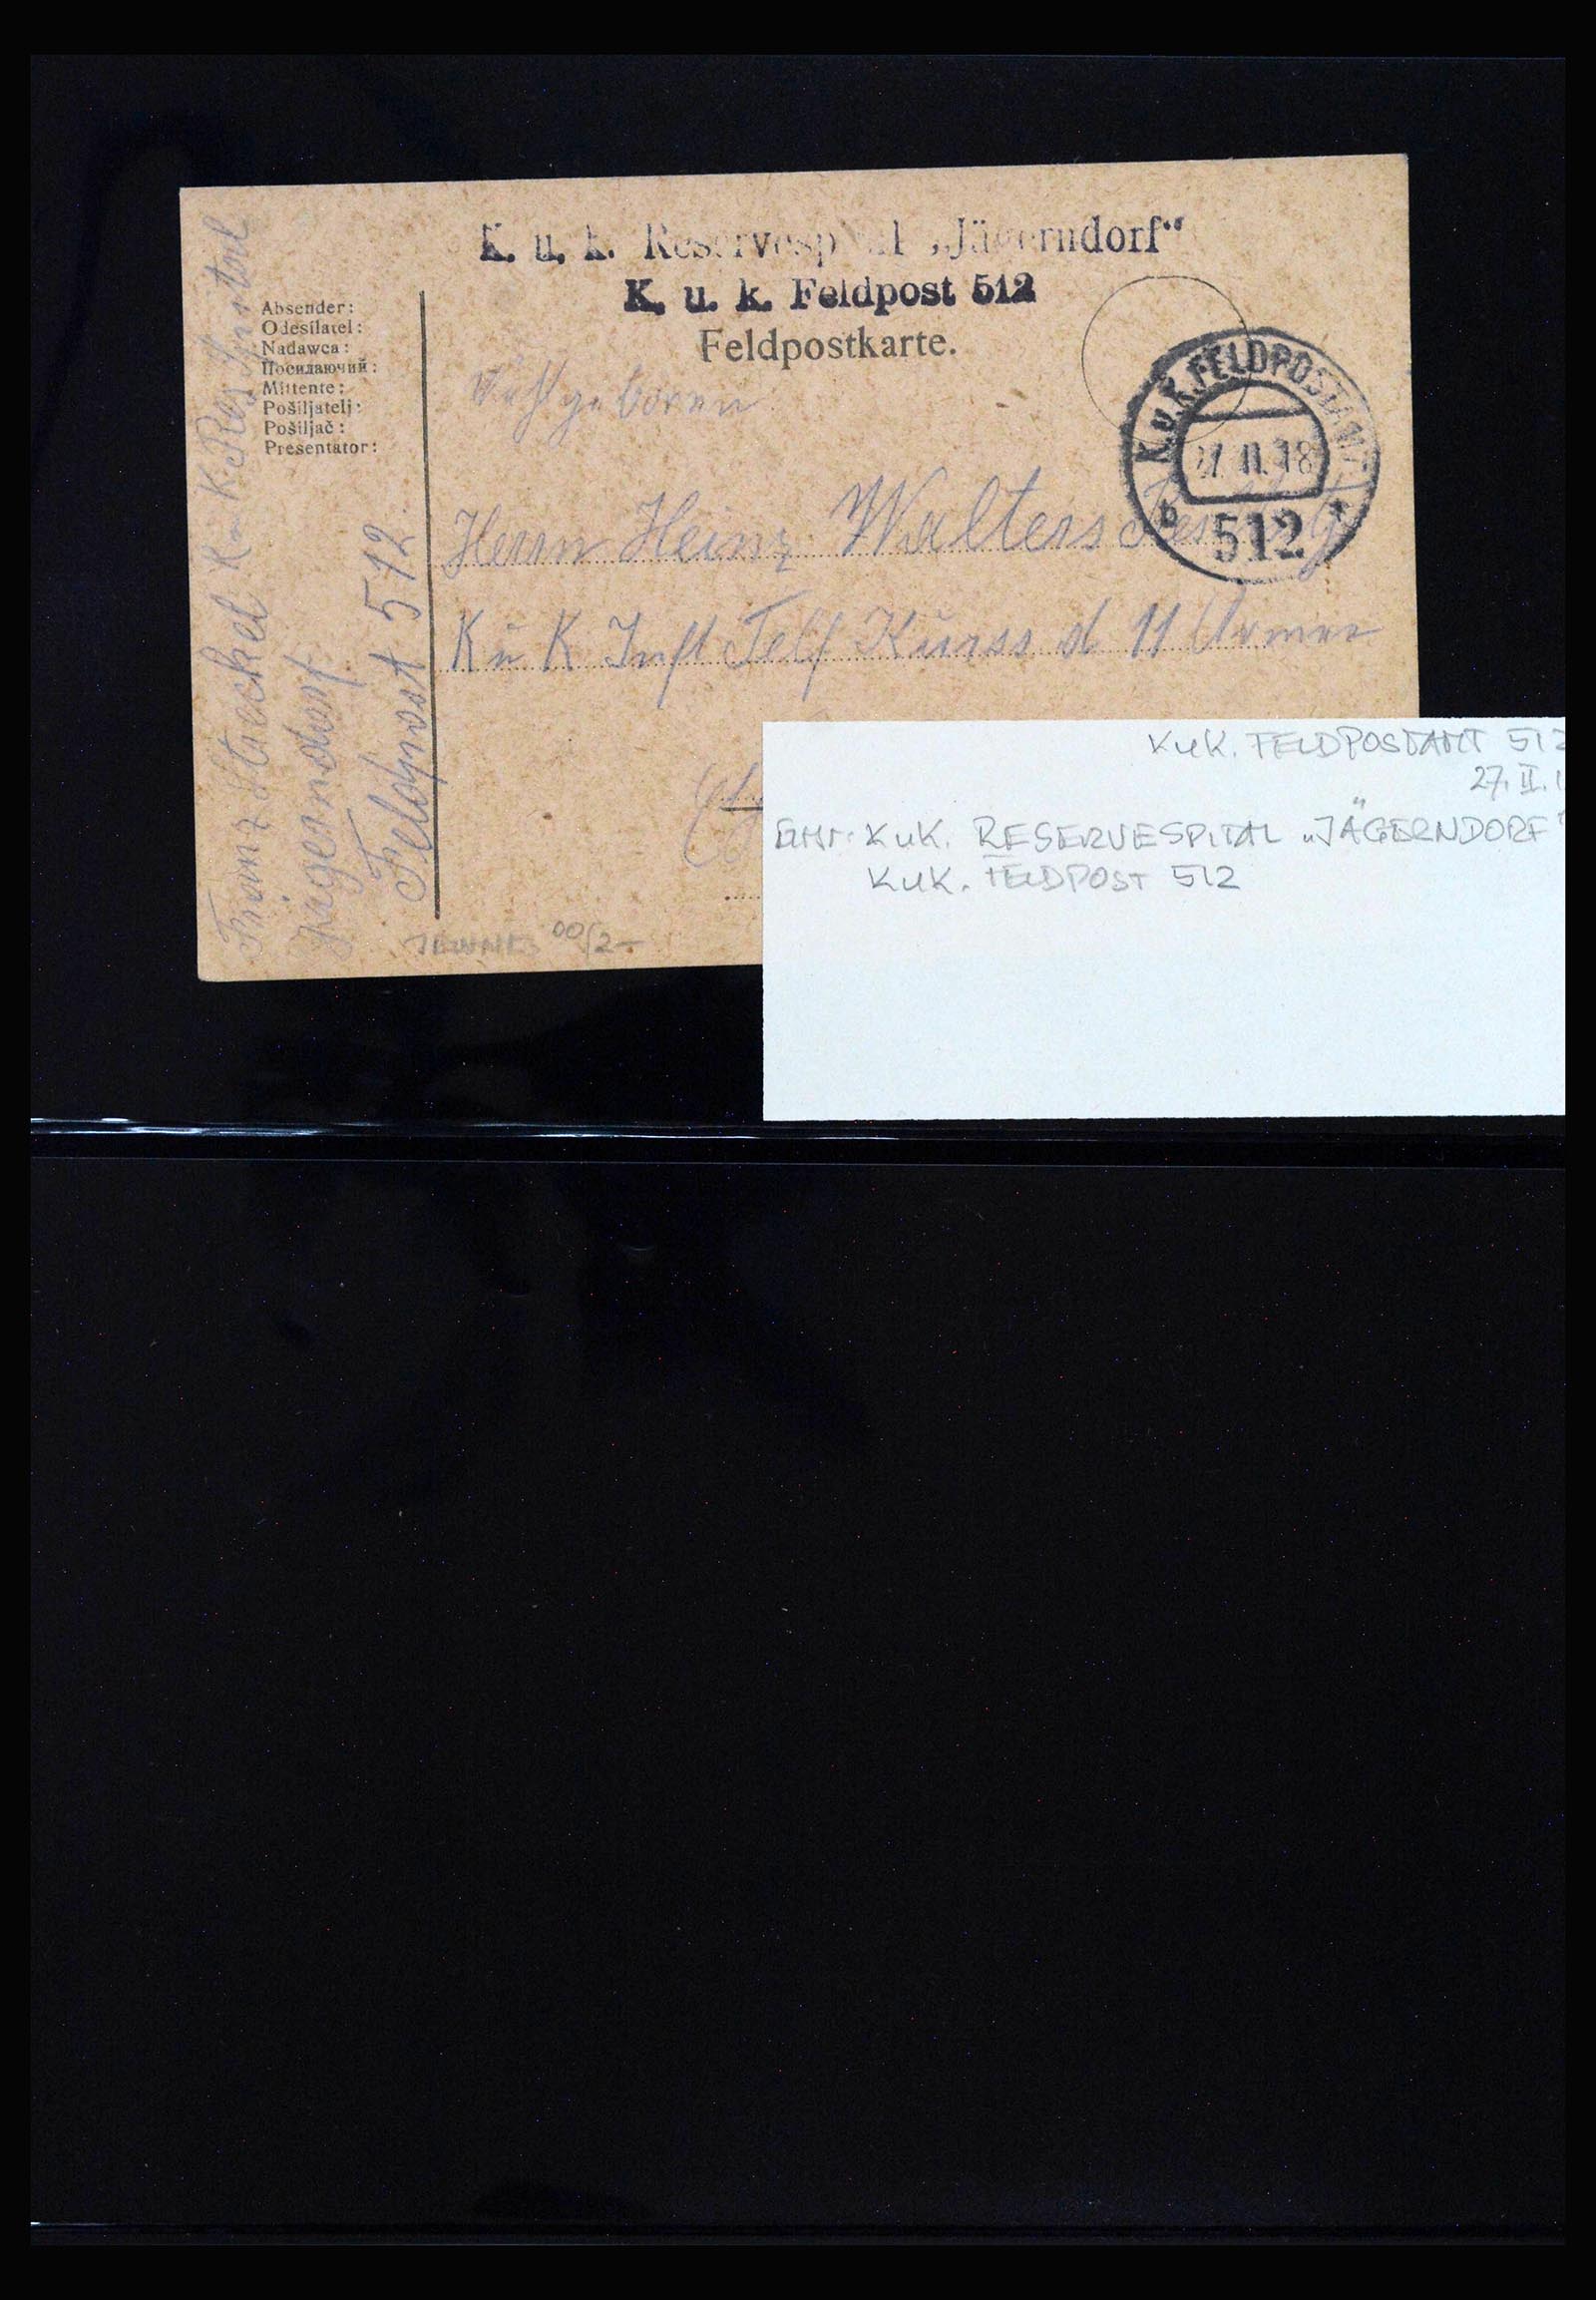 K. u. k. Reservespital „Jägerndorf“
K. u. k. Feldpost 512
Feldpostkarte.
Absender:
Odesílatel:
Nadawca:
Посилаючий:
Mittente:
Pošiljatelj:
Pošiljač:
Presentator:
Franz Stackel K. u K. Res Spital
Jägerndorf
Feldpost 512
K.u.K. FELDPOSTAMT
27 II. 18
b 512 *
Herrn Heinz Walters
K u K Inft Telf Kurss d 11 Armee
00/2-
KuK. FELDPOSTAMT 512
27. II. 1
KuK. RESERVESPITAL „JÄGERNDORF"
KUK. FELDPOST 512